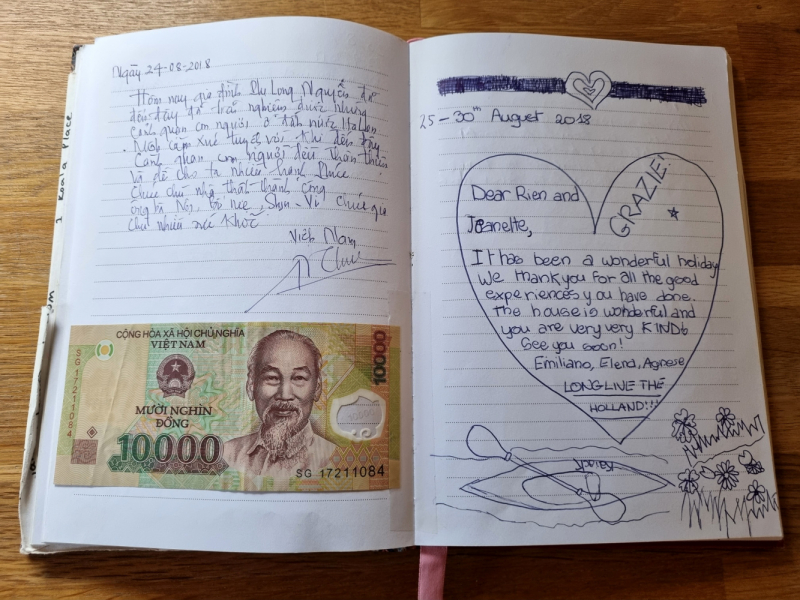 1 Koala Place
Ngày 24-08-2018
Hôm nay gia đình Du Long Nguyễn đã
đến đây để trải nghiệm được những
cảnh quan con người ở đất nước
cảm xúc tuyệt vời khi đến đây
Cảnh quan con người đều thân thiện
và để cho ta nhiều hạnh phúc
Chúc chủ nhà thật thành công
chúc gia
chủ nhiều sức khỏe
Việt Nam
CỘNG HÒA XÃ HỘI CHỦ NGHĨA
VIỆT NAM
10000
SG 17211084
MƯỜI NGHÌN
ĐỒNG
10000
SG 17211084
25-30th August 2018
GRAZIE!
Dear Rien and
Jeanette,
It has been a wonderful holiday
We thank you for all the good
experiences you have done.
The house is wonderful and
you are very very KIND
See you soon!
Emiliano, Elena, Agnese
LONG LIVE THE
HOLLAND!!!